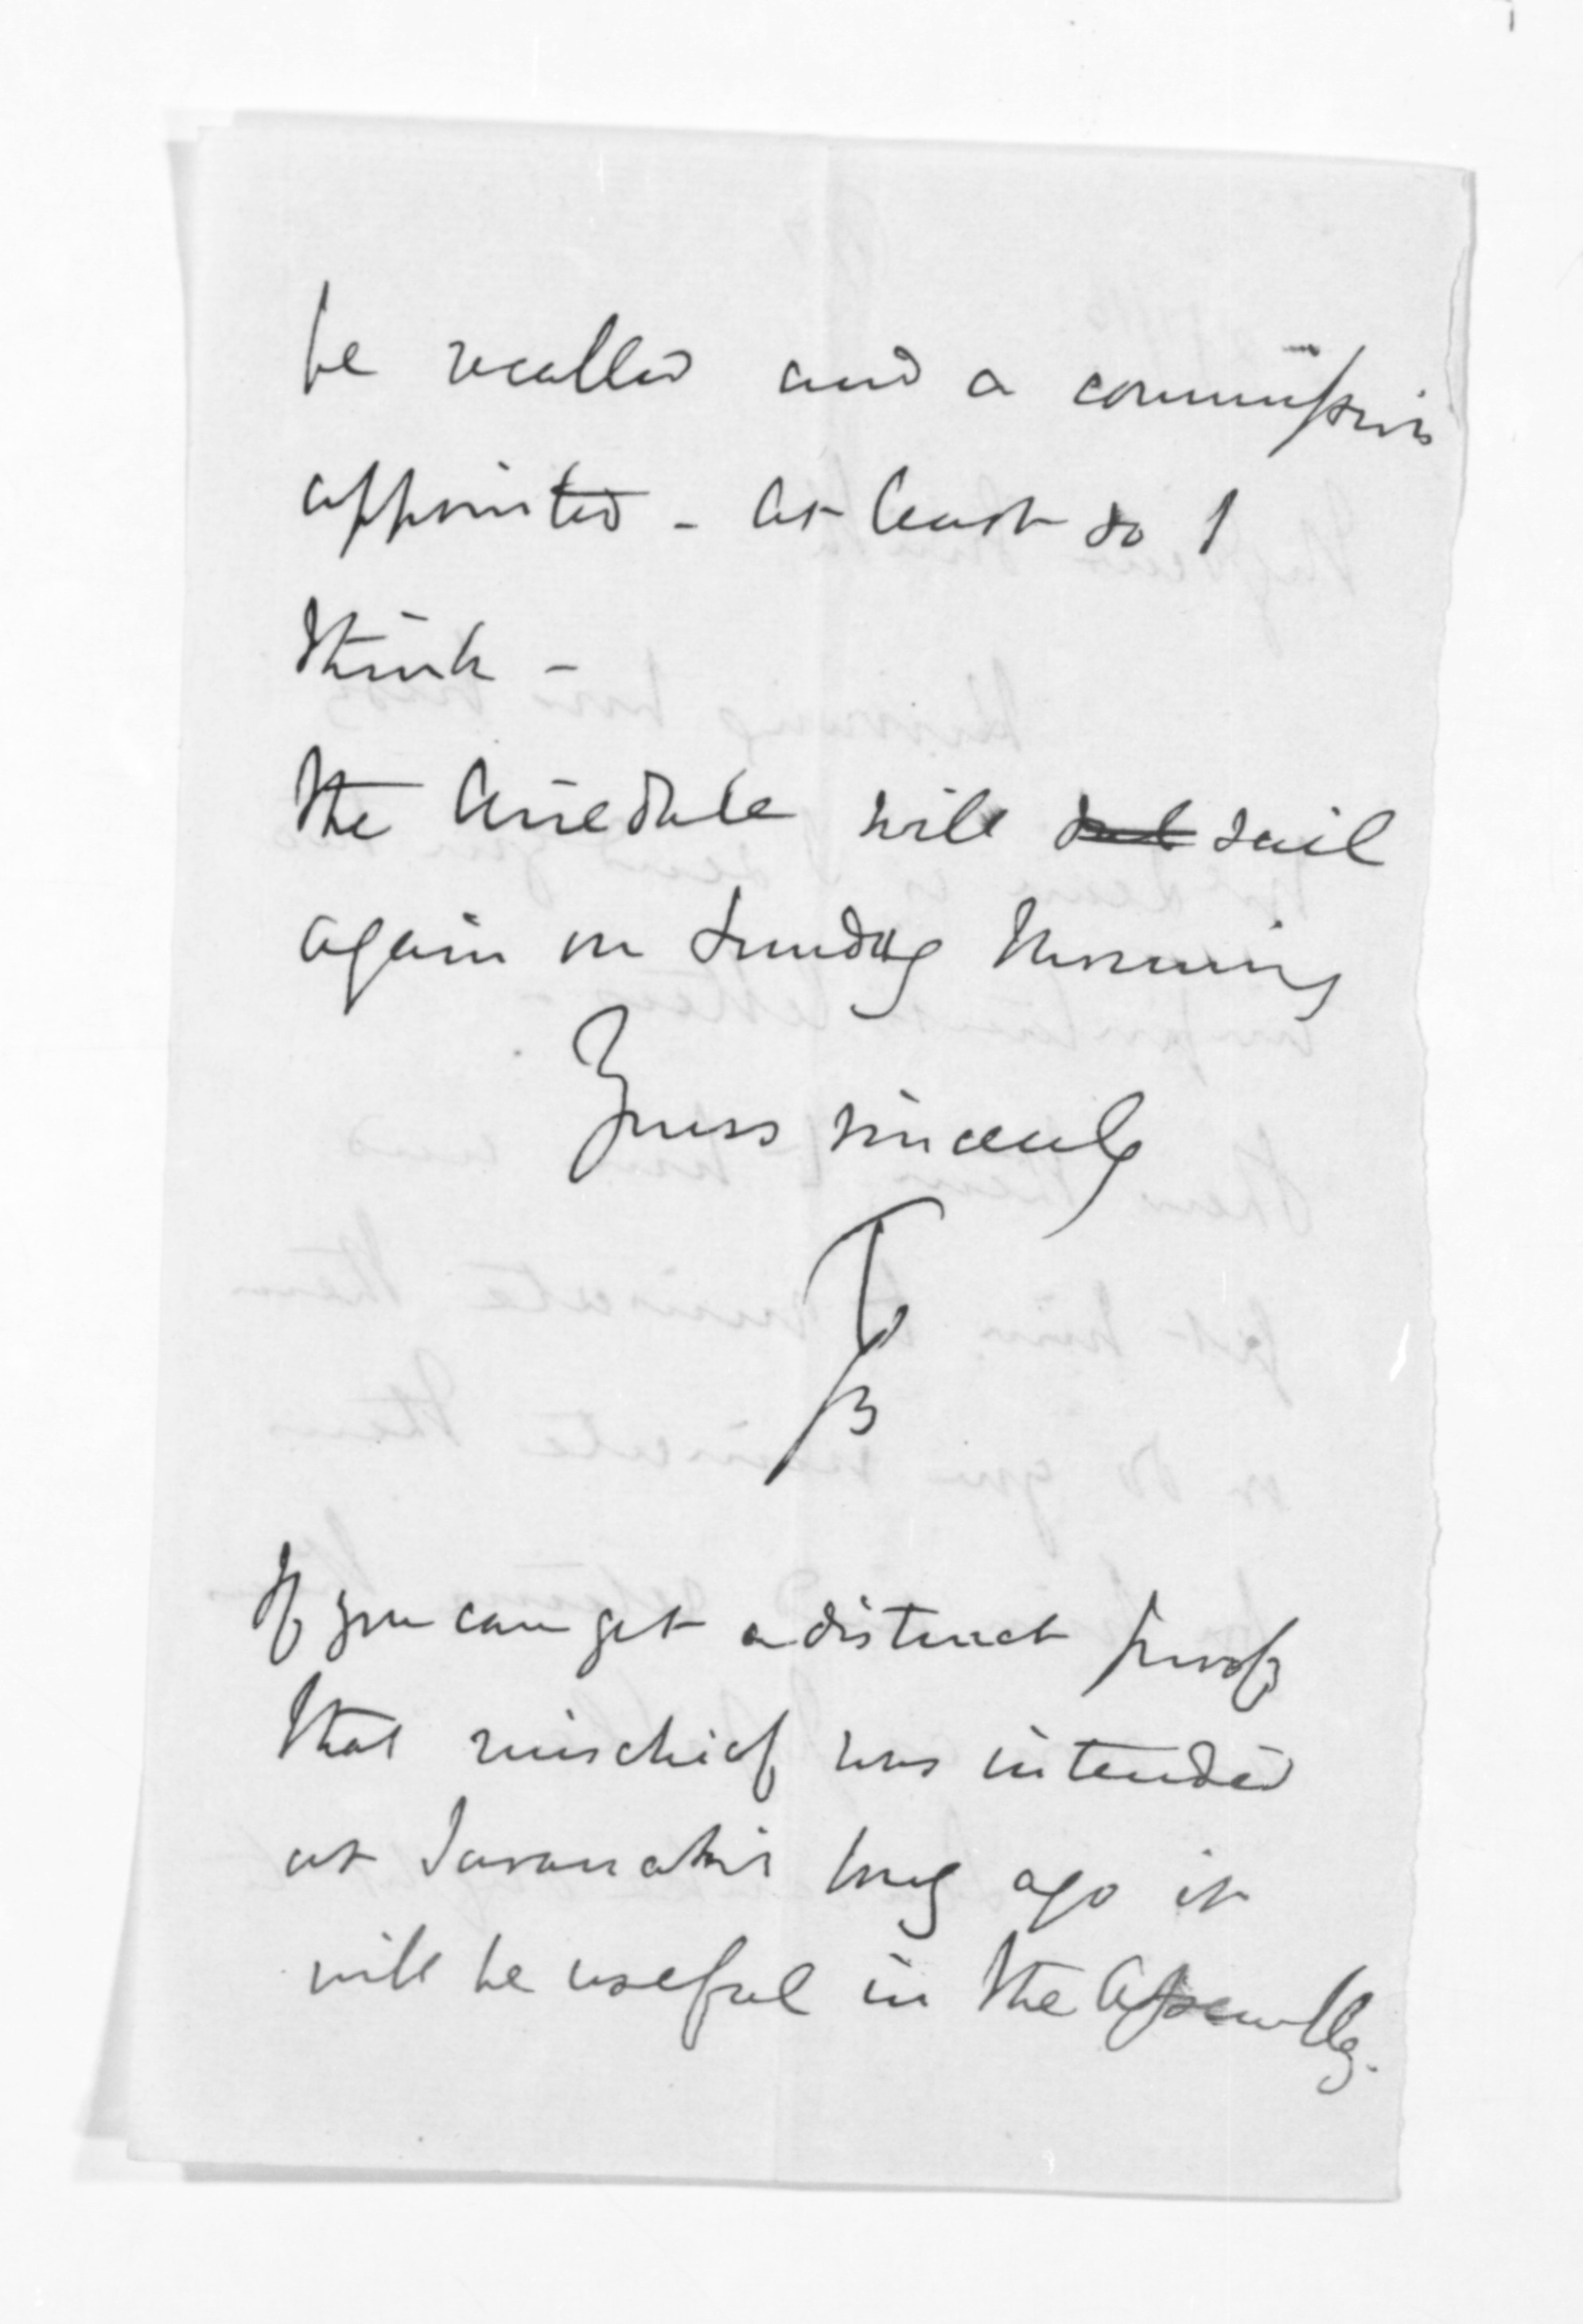 be recalled and a commission
appointed - at least so I
think -
The Airedale will sail
again on Sunday Morning
Yours sincerely
TGB
If you can get a distinct proof
that mischief was intended
at Taranaki long ago it
will be useful in the Assembly.